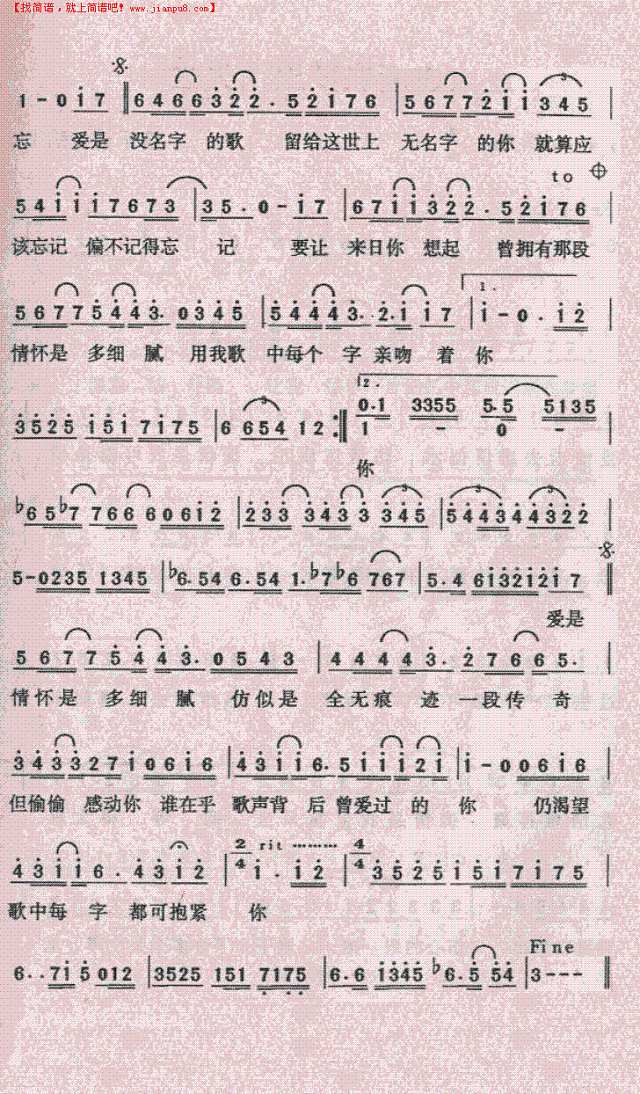 【找简谱，就上简谱吧! www.jianpu8.com】
1 - 0 i 7 6 4 6 6 3 2 2. 5 2 1 7 6 5 6 7 7 2 1 1 3 4 5
忘 爱是 没名字 的歌 留给这世上 无名字 的你 就算应
to
5 4 1 1 1 7 6 7 3 3 5. 0 - i 7 6 7 1 1 3 2 2. 5 2 1 7 6
该忘记 偏不记得忘 记 要让 来日你 想起 曾拥有那段
1.
5 6 7 7 5 4 4 3. 0 3 4 5 5 4 4 4 3. 2. 1 1 7 i - 0. i 2
情怀是 多细 腻 用我歌 中每个 字 亲吻 着 你
2.
0.1 3355 5.5 5135
3 5 2 5 1 5 1 7 1 7 5 6 6 5 4 1 2 1 - 0 -
你
b6 5 b7 7 6 6 6 0 6 1 2 2 3 3 3 4 3 3 3 4 5 5 4 4 3 4 4 3 2 2
5 - 0 2 3 5 1 3 4 5 b6. 5 4 6. 5 4 1. b7 b6 7 6 7 5. 4 6 1 3 2 1 2 1 7
爱是
5 6 7 7 5 4 4 3. 0 5 4 3 4 4 4 4 3. 2 7 6 6 5.
情怀是 多细 腻 仿似是 全无痕 迹 一段传 奇
3 4 3 3 2 7 1 0 6 1 6 4 3 1 1 6. 5 1 1 2 1 i - 0 0 6 1 6
但偷偷 感动你 谁在乎 歌声背 后曾爱过 的 你 仍渴望
2 rit ……… 4
4 3 1 1 6. 4 3 1 2 4 1. 1 2 4 3 5 2 5 1 5 1 7 1 7 5
歌中每 字 都可抱紧 你
Fine
6.. 7 1 5 0 1 2 3 5 2 5 1 5 1 7 1 7 5 6. 6 1 3 4 5 b6. 5 5 4 3 - - -